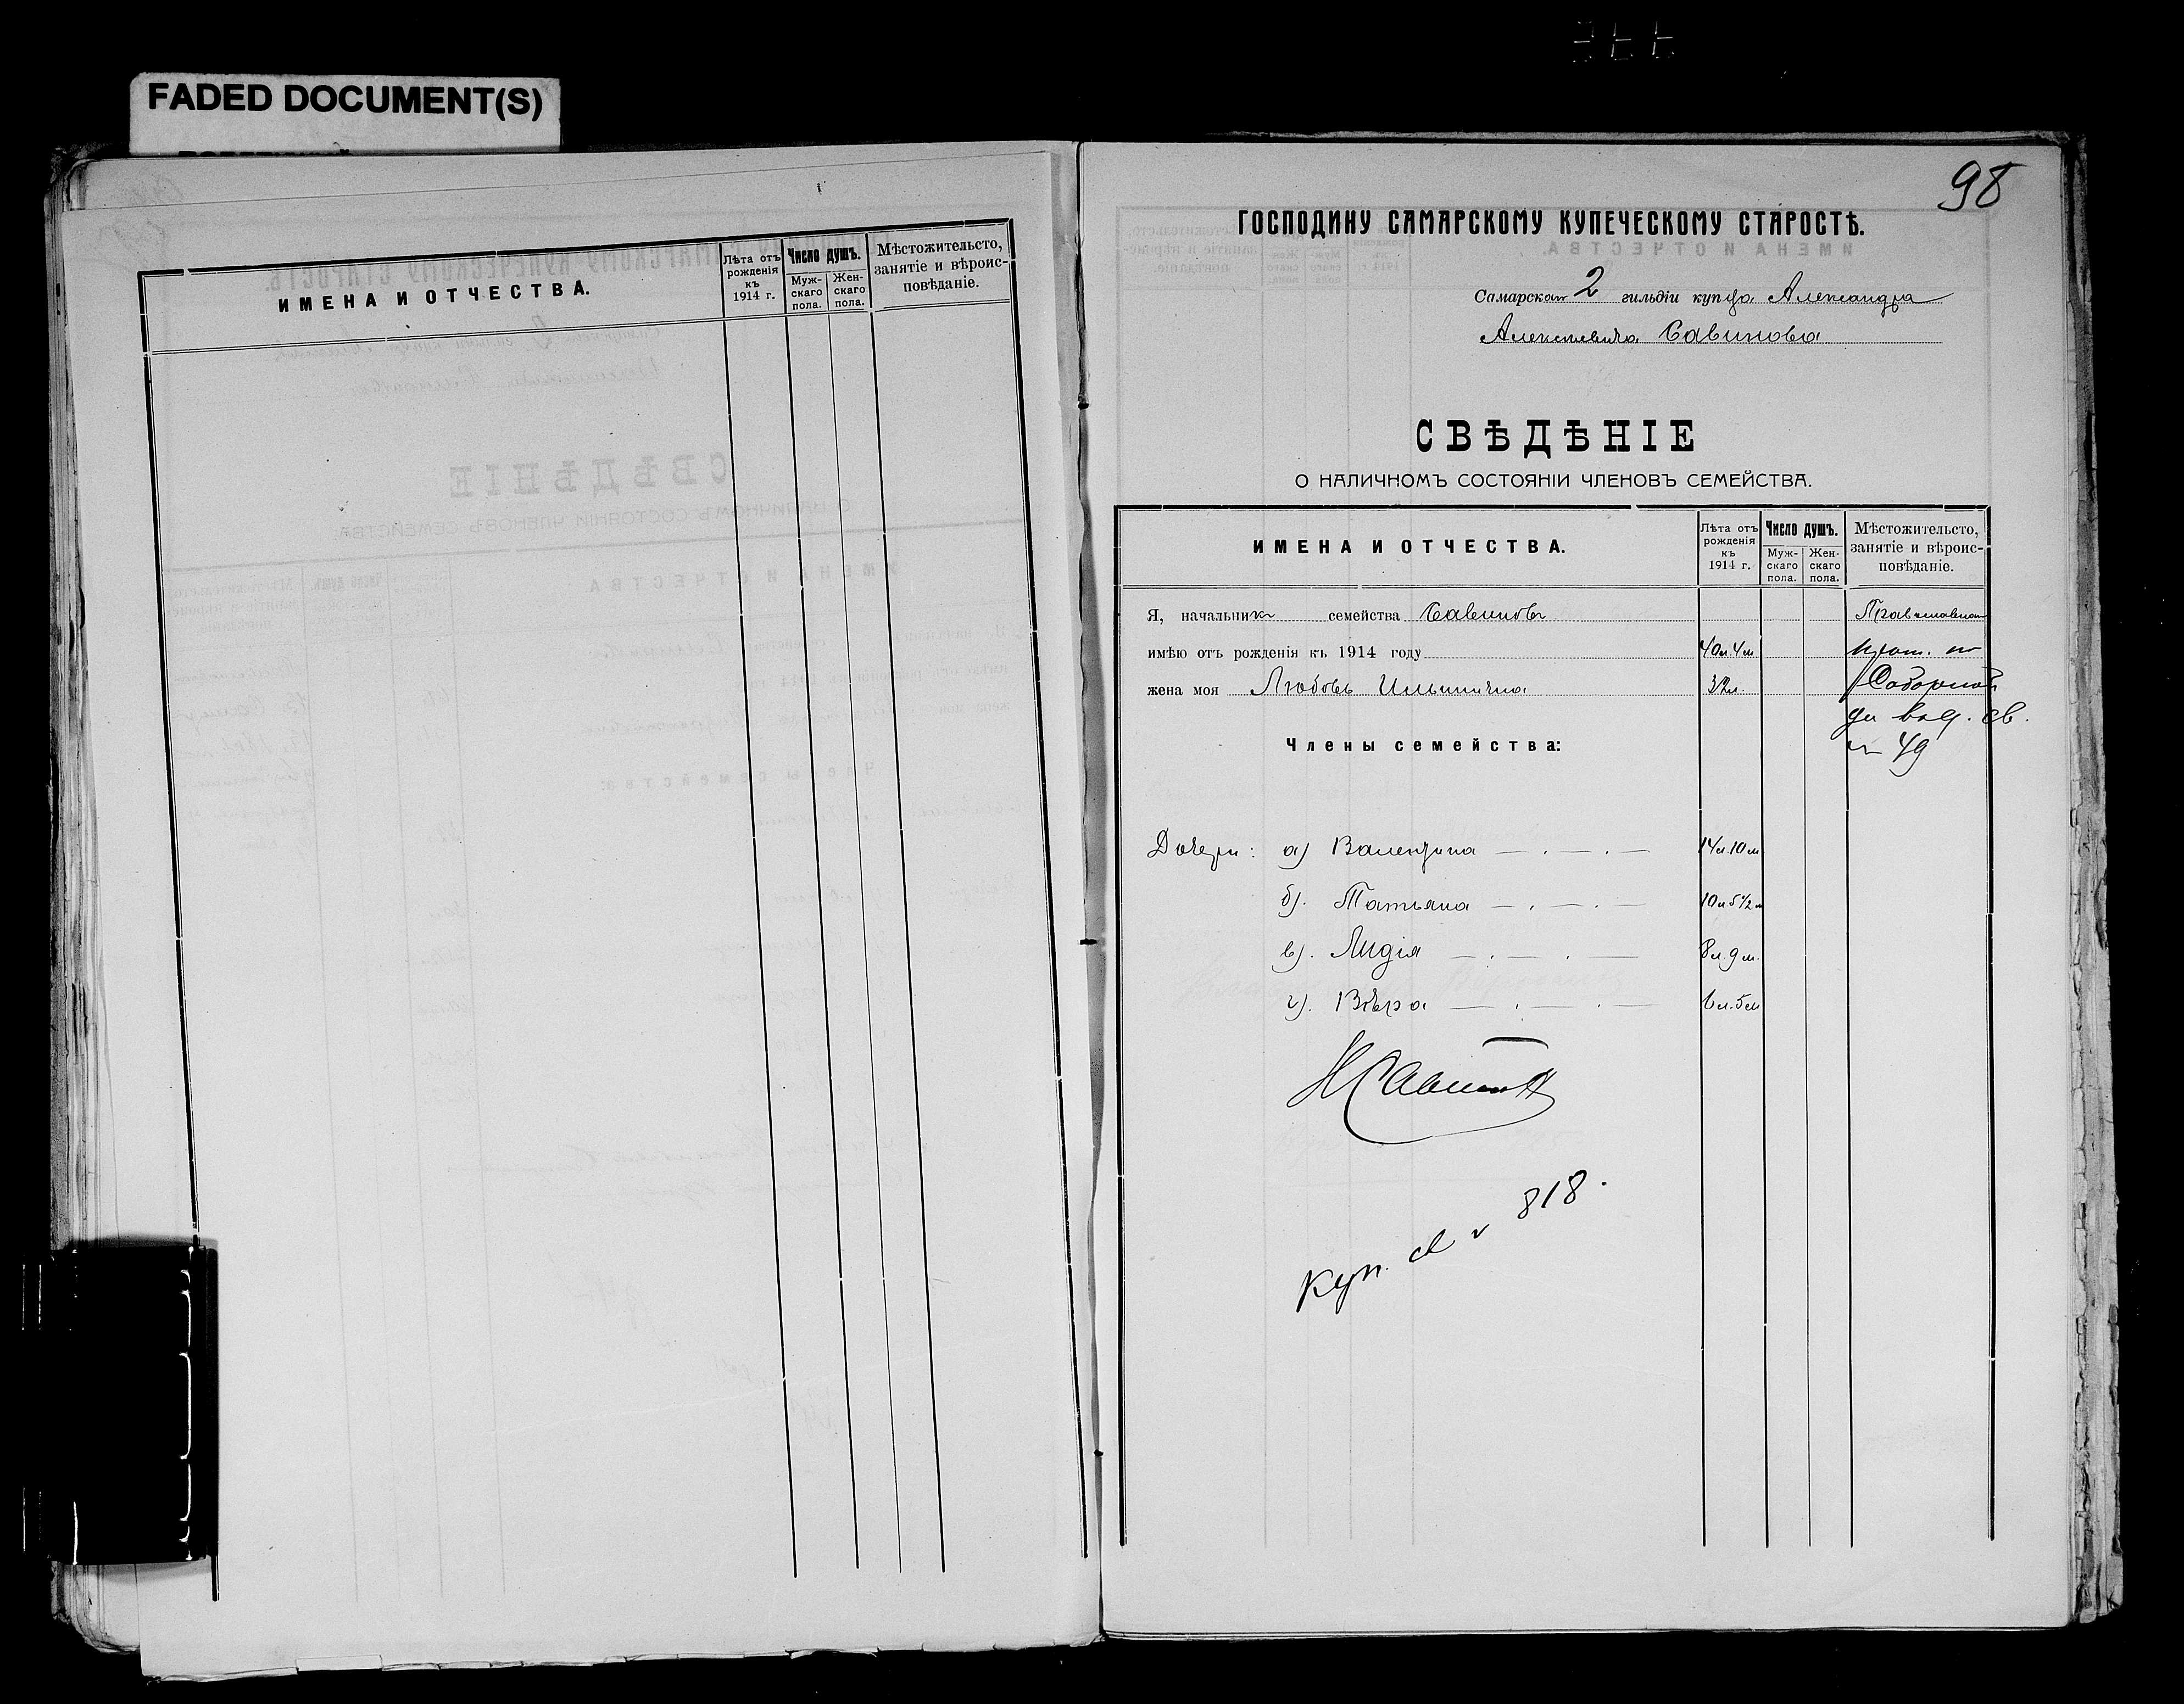 FADED DOCUMENT(S)
ИМЕНА И ОТЧЕСТВА.
Лѣта отъ рожденія къ 1914 г.
Число душъ.
Муж-скаго пола.
Жен-скаго пола.
Мѣстожительсто, занятіе и вѣроис-повѣданіе.
98
ГОСПОДИНУ САМАРСКОМУ КУПЕЧЕСКОМУ СТАРОСТѢ.
Самарскаго 2 гильдіи купца Александра
Алексѣевича Савинова
СВѢДѢНІЕ
О НАЛИЧНОМЪ СОСТОЯНІИ ЧЛЕНОВЪ СЕМЕЙСТВА.
ИМЕНА И ОТЧЕСТВА.
Лѣта отъ рожденія къ 1914 г.
Число душъ.
Муж-скаго пола.
Жен-скаго пола.
Мѣстожительсто, занятіе и вѣроис-повѣданіе.
Я, начальникъ семейства Савиновъ
имѣю отъ рожденія къ 1914 году 40 л. 4 м
жена моя Любовь Ильинична 32 л.
Соборной
49
Члены семейства:
Дочери: а) Валентина — . — . — 14 л. 10 м
б). Татьяна — . — . — 10 л 5 1/2 м
в). Лидія — . — . — 8 л. 9 м.
г). Вѣра — . — . — 6 л. 5 м
Куп. св № 818.